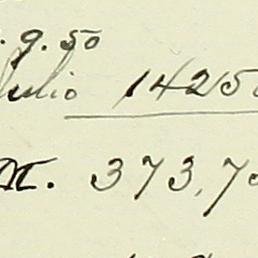 . g. 50
Julio 1425
M. 373,70